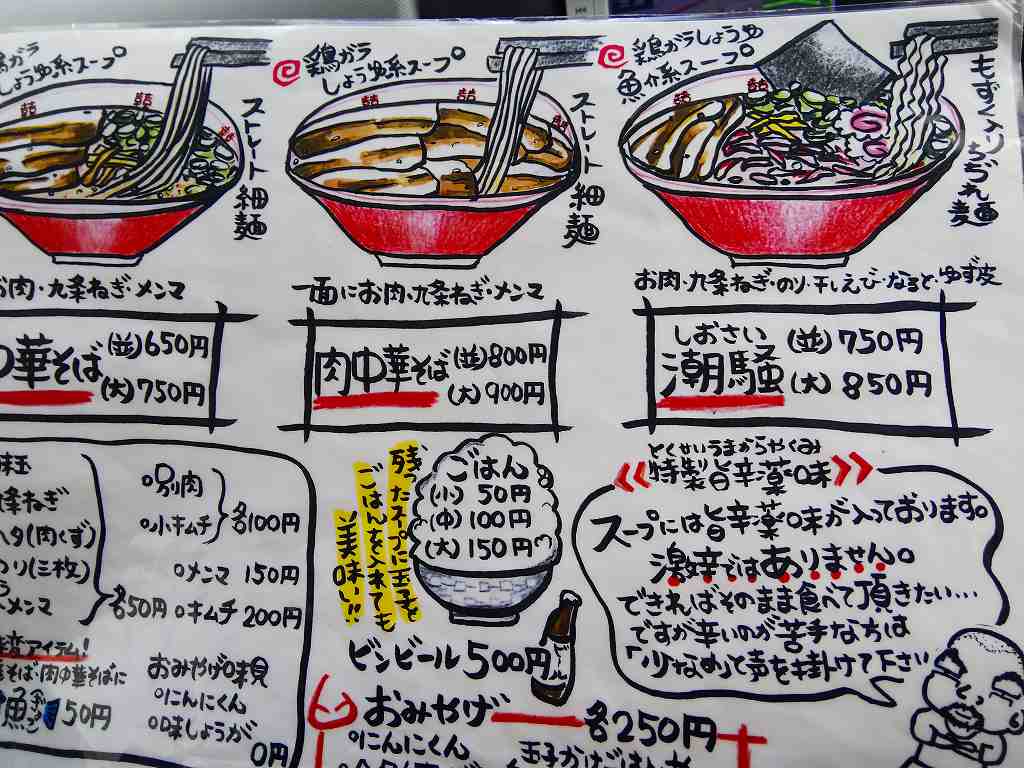 鶏ガラ
しょうゆ系スープ
ストレート細麺
お肉・九条ねぎ・メンマ
中華そば
(並)650円
(大)750円
鶏ガラ
しょうゆ系スープ
ストレート細麺
一面にお肉・九条ねぎ・メンマ
肉中華そば
(並)800円
(大)900円
鶏ガラしょうゆ
魚介系スープ
もずく入り
ちぢれ麺
お肉・九条ねぎ・のり・干しえび・なると・ゆず皮
しおさい
潮騒
(並)750円
(大)850円
味玉
九条ねぎ
ヘタ(肉くず)
のり(三枚)
メンマ
各50円
別肉
小キムチ
各100円
メンマ 150円
キムチ 200円
味変アイテム!
中華そば・肉中華そばに
魚 50円
おみやげ味見
にんにくん
味しょうが
0円
残ったスープに玉子を
ごはんを入れても
美味い!!
ごはん
(小) 50円
(中) 100円
(大) 150円
ビンビール 500円
おみやげ 各250円
にんにくん
玉子かけごはん
とくせいうまからやくみ
特製旨辛薬味
スープには旨辛薬味が入っております。
激辛ではありません。
できればそのまま食べて頂きたい…
ですが辛いのが苦手な方は
「少なめ」と声を掛けて下さい